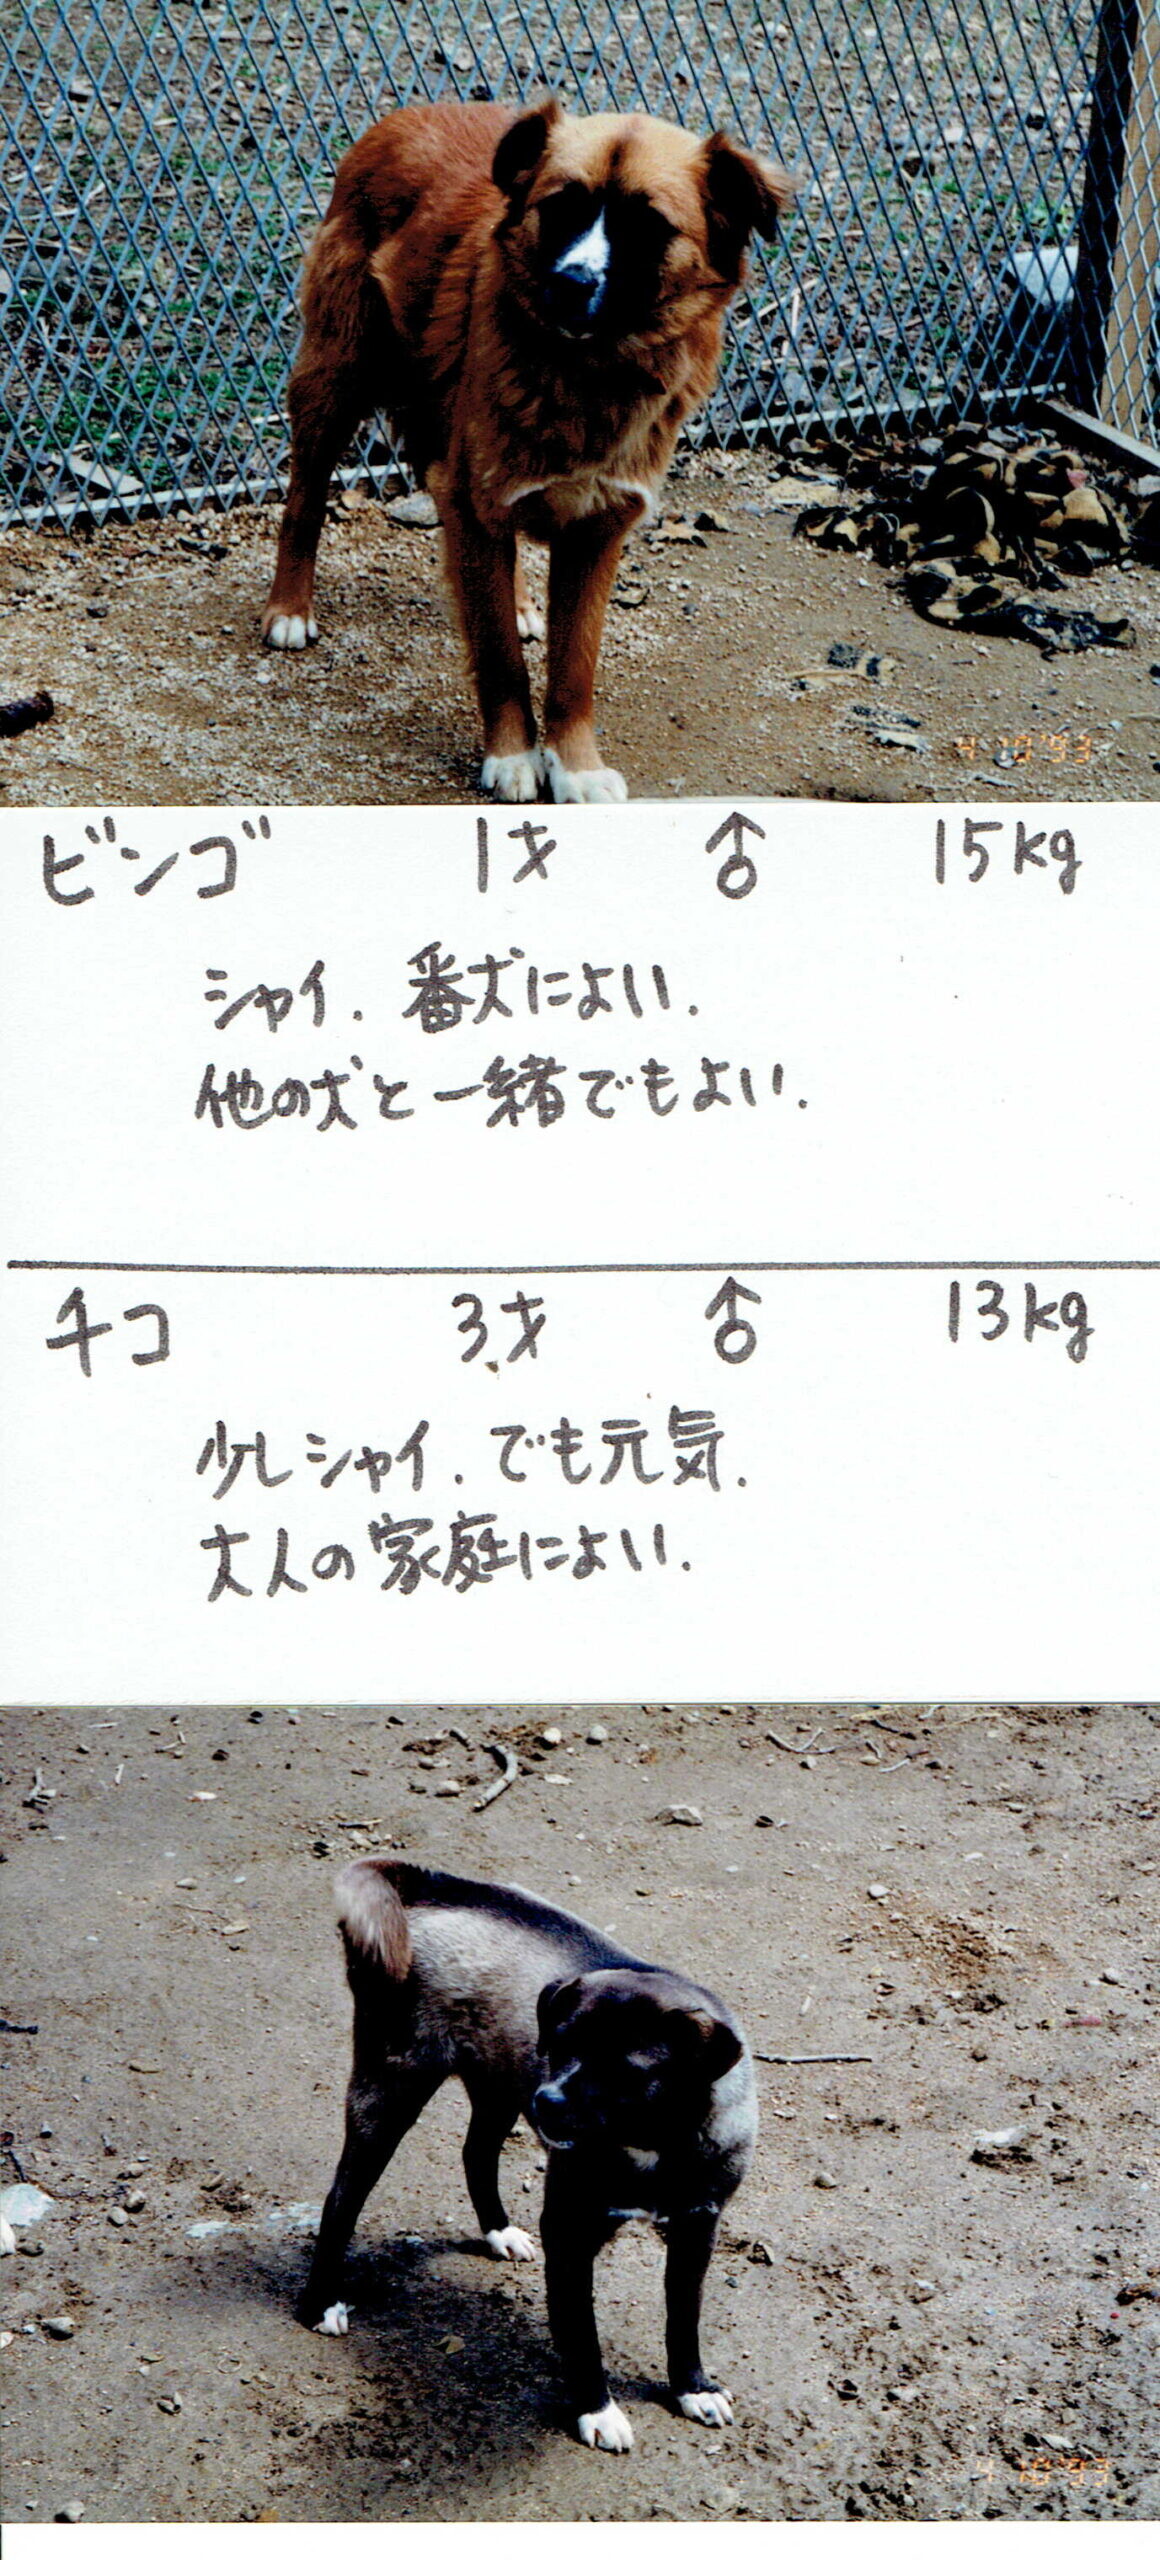 4 10 '93
ビンゴ 1才 ♂ 15kg
シャイ. 番犬によい.
他の犬と一緒でもよい.
チコ 3才 ♂ 13kg
少しシャイ. でも元気.
大人の家庭によい.
4 10 '93